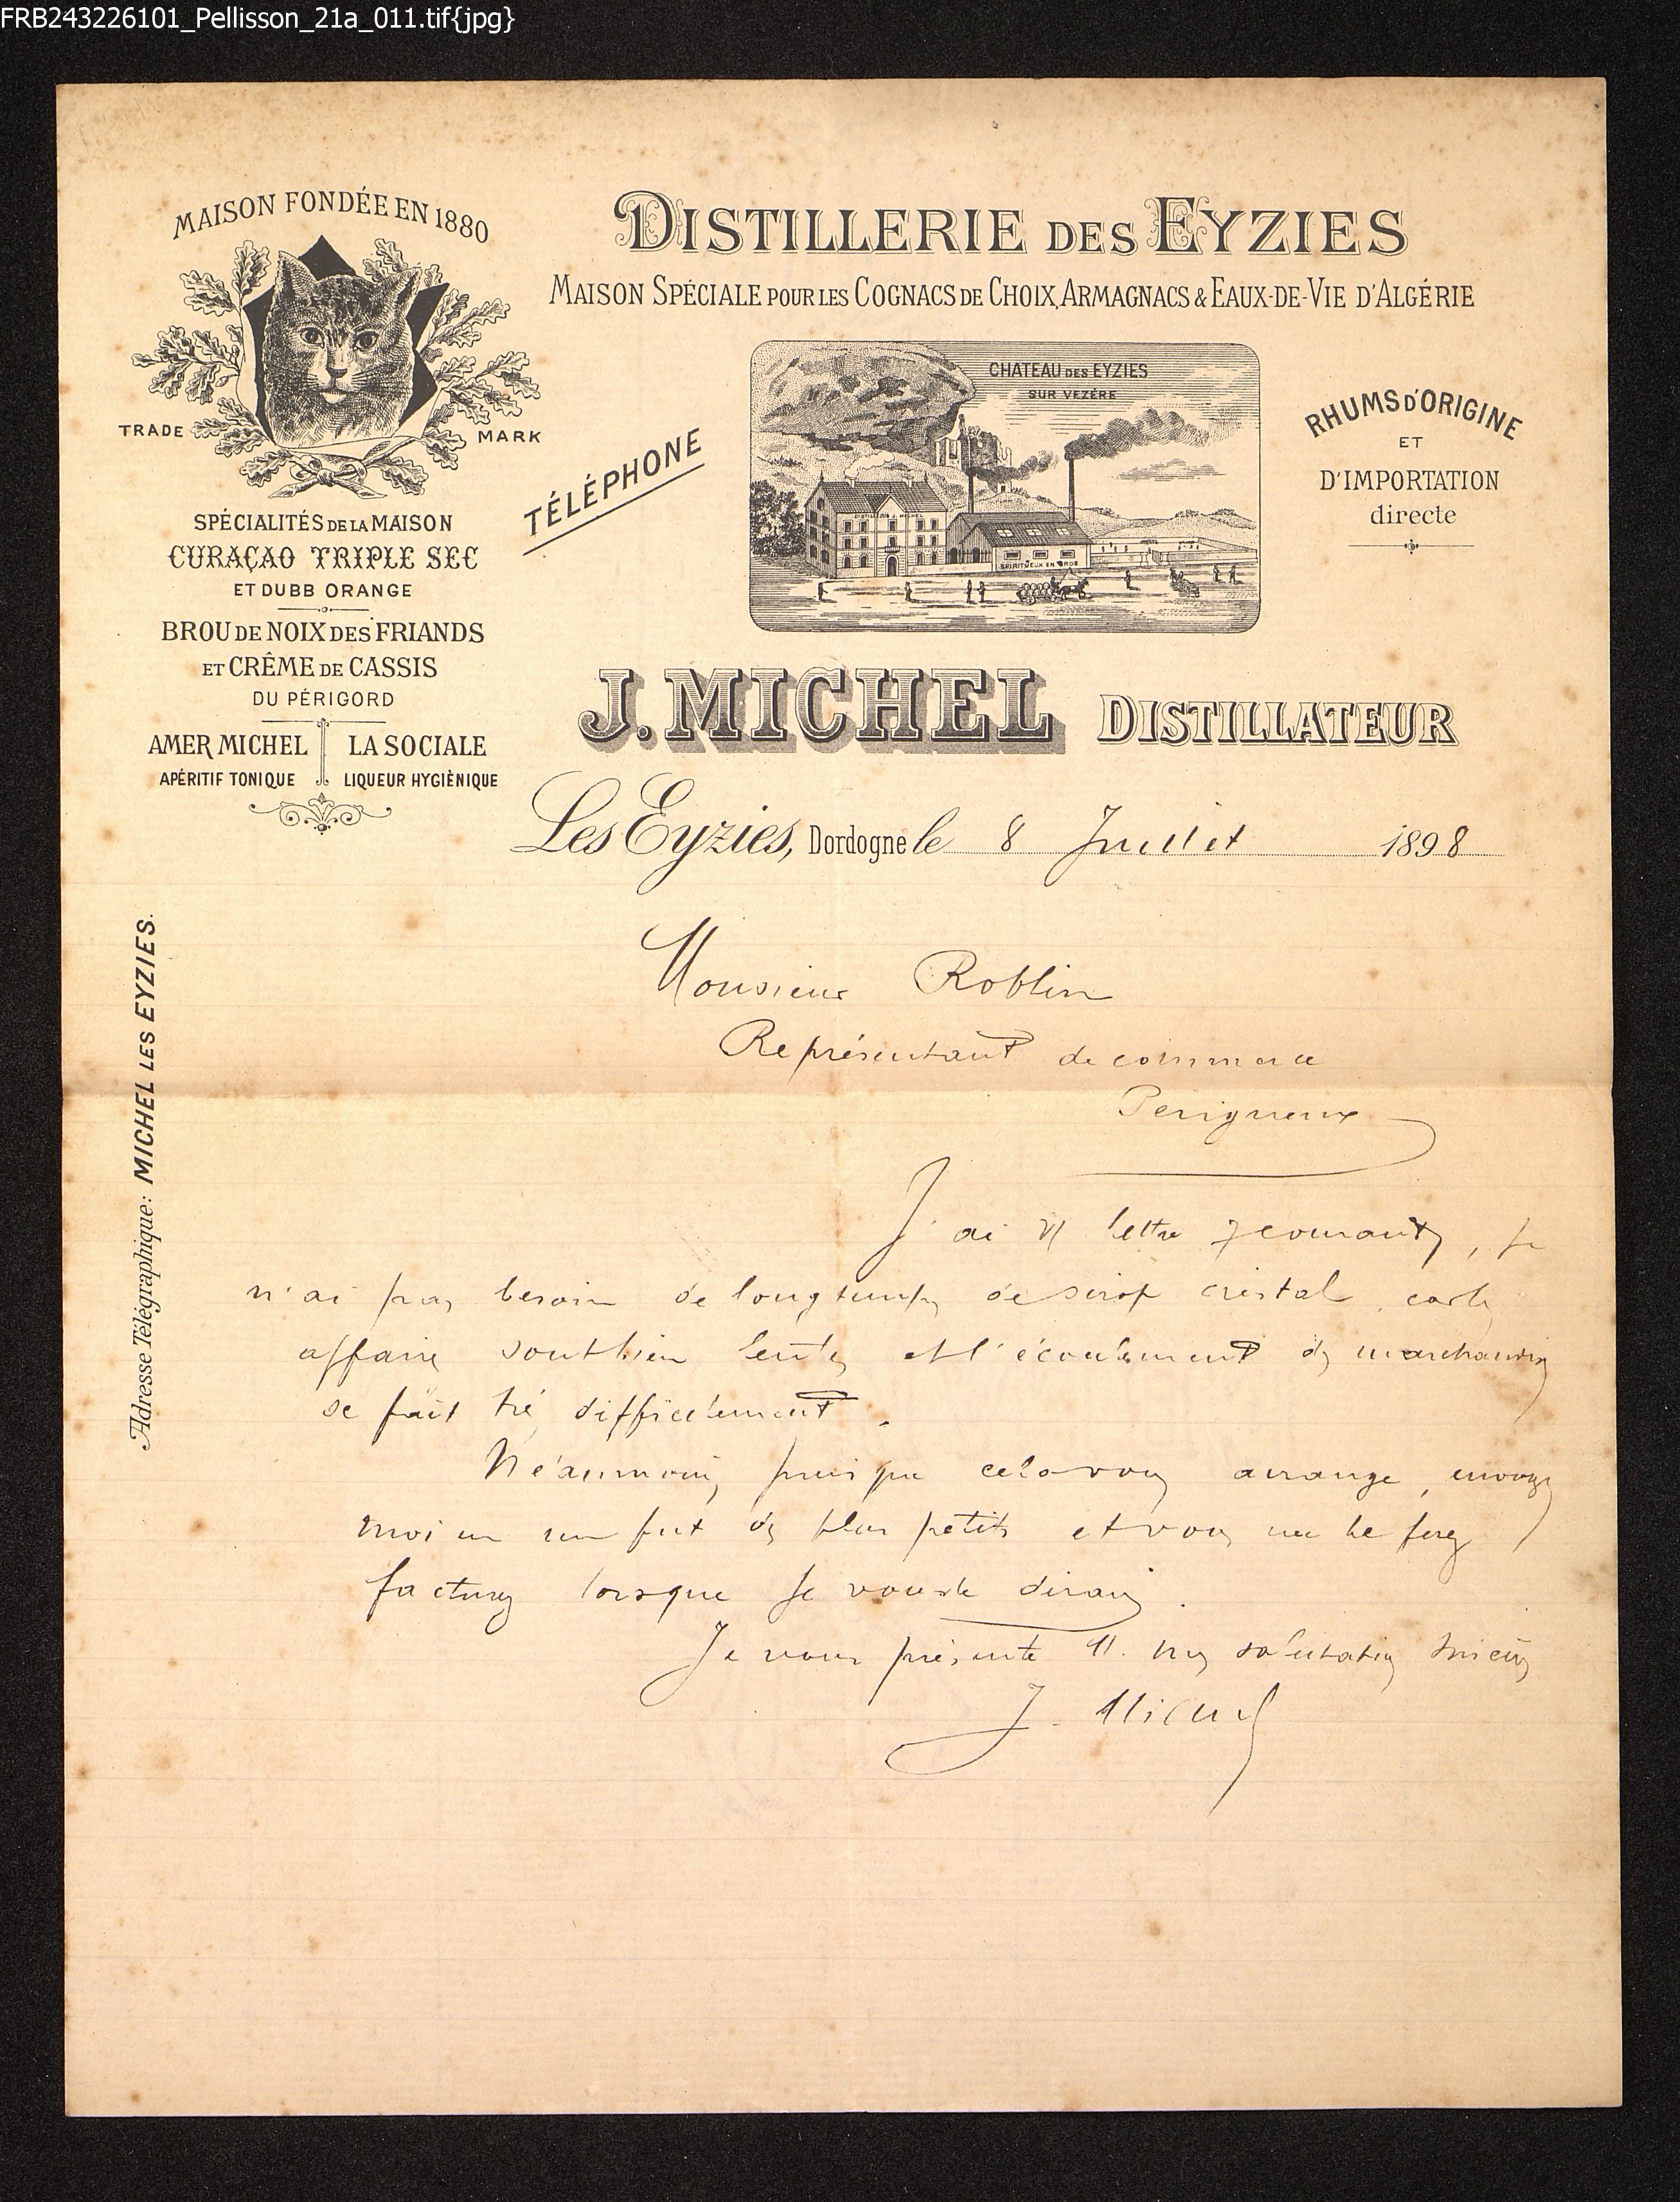 FRB243226101_Pellisson_21a_011.tif{jpg}
MAISON FONDÉE EN 1880
TRADE MARK
SPÉCIALITÉS DE LA MAISON
CURAÇAO TRIPLE SEC
ET DUBB ORANGE
BROU DE NOIX DES FRIANDS
ET CRÊME DE CASSIS
DU PÉRIGORD
AMER MICHEL
APÉRITIF TONIQUE
LA SOCIALE
LIQUEUR HYGIÈNIQUE
DISTILLERIE DES EYZIES
MAISON SPÉCIALE POUR LES COGNACS DE CHOIX, ARMAGNACS & EAUX-DE-VIE D'ALGÉRIE
TÉLÉPHONE
CHATEAU DES EYZIES
SUR VEZÈRE
DISTILLERIE J. MICHEL
SPIRITUEUX EN GROS
RHUMS D'ORIGINE
ET
D'IMPORTATION
directe
J. MICHEL DISTILLATEUR
Les Eyzies, Dordogne le 8 Juillet 1898
Adresse Télégraphique: MICHEL LES EYZIES.
Monsieur Roblin
Représentant de commerce
Périgueux
J'ai lettre 7 courant, je
n'ai pas besoin de longtemps de sirop cristal, car les
affaires sont bien lentes et l'écoulement des marchandises
se fait très difficilement.
Néanmoins, puisque cela vous arrange, envoyez
moi en un fut des plus petits et vous me le ferez
facturez lorsque je vous le dirai.
Je vous présente M. mes salutations sincères
J. Michel